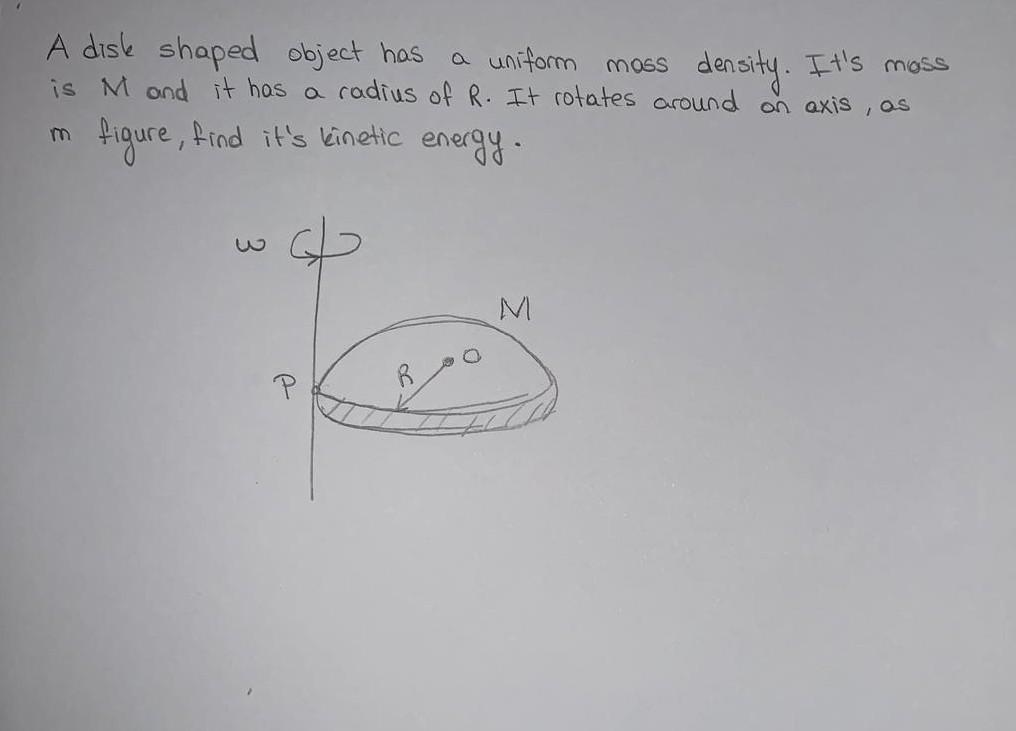 A disk shaped object has a uniform mass density. It's mass
is M and it has a radius of R. It rotates around an axis, as
m figure, find it's kinetic energy.
w
M
O
R
P